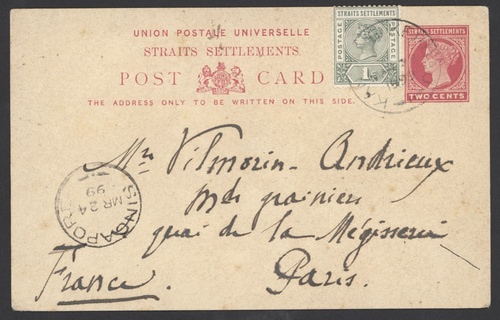 UNION POSTALE UNIVERSELLE
STRAITS SETTLEMENTS
POST CARD
THE ADDRESS ONLY TO BE WRITTEN ON THIS SIDE.
STRAITS SETTLEMENTS
POSTAGE
POSTAGE
1c
TWO CENTS
Mr Vilmorin-Andrieux
Md grainier
quai de la Mégisserie
Paris.
France.
SINGAPORE
MR 24
99